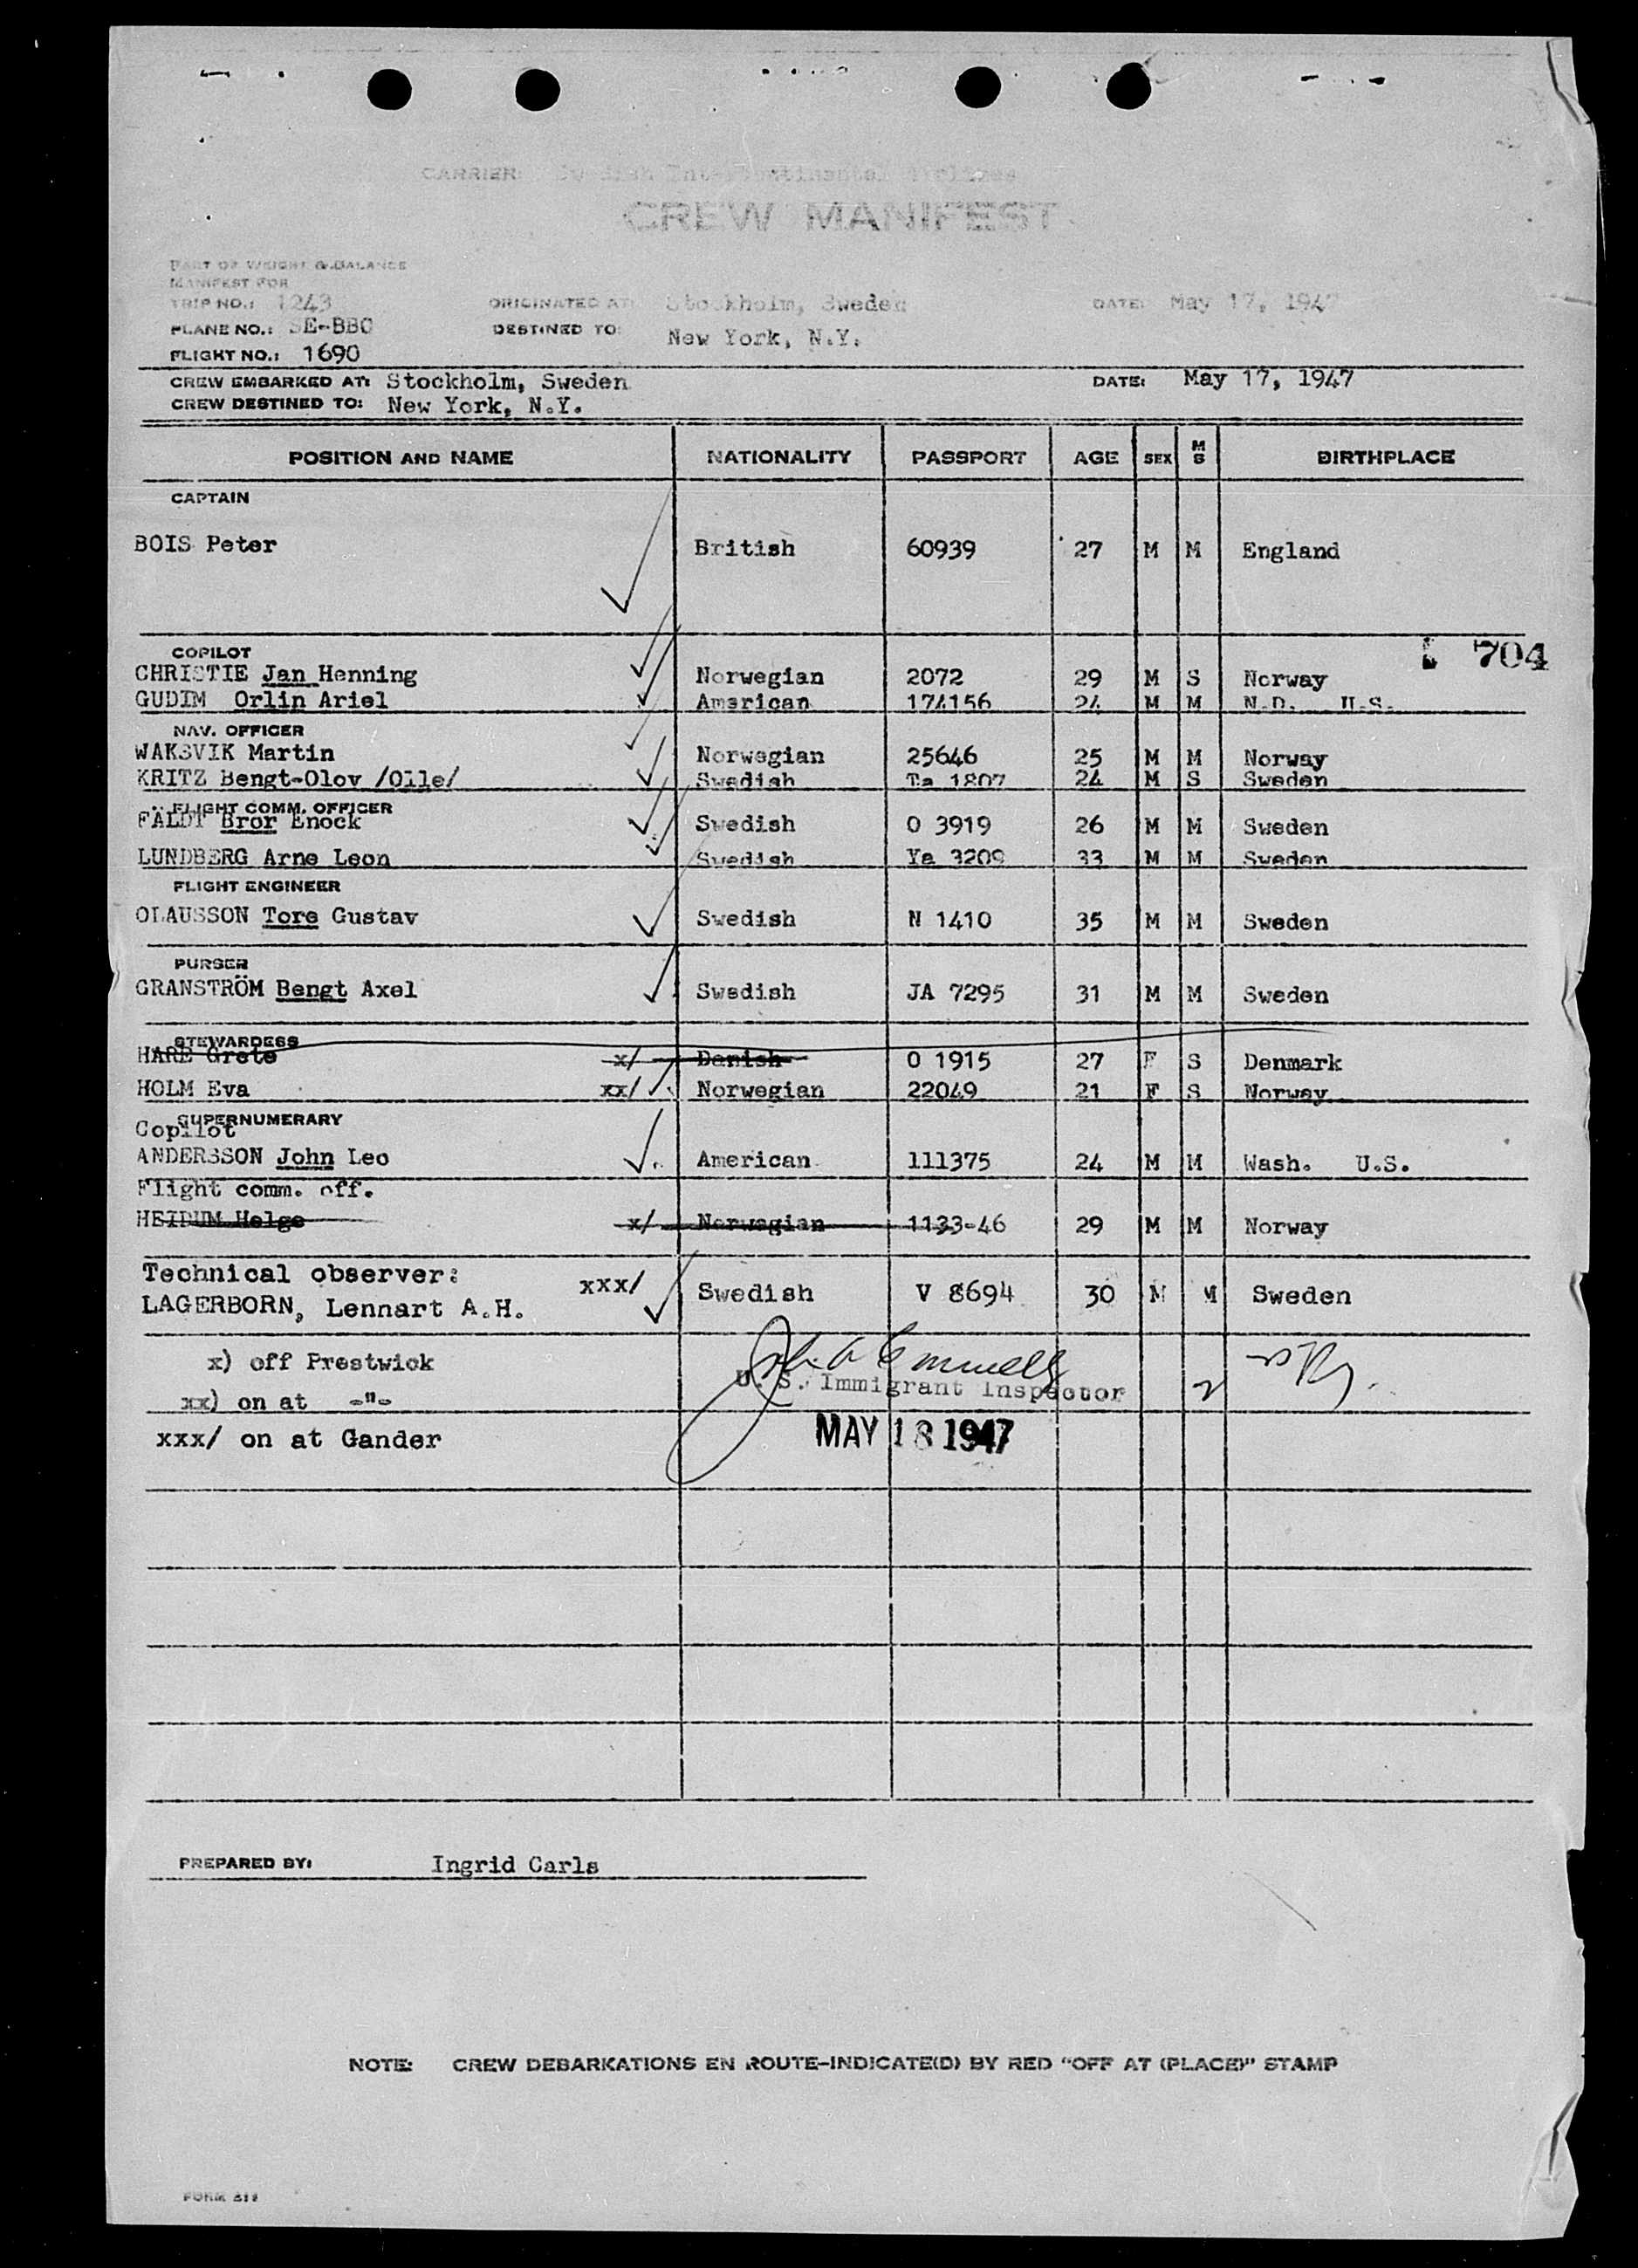 CARRIER: Swedish Intercontinental Airlines
CREW MANIFEST
PART OF WEIGHT & BALANCE
MANIFEST FOR
TRIP NO.: 1243 ORIGINATED AT: Stockholm, Sweden DATE: May 17, 1947
PLANE NO.: SE-BBC DESTINED TO: New York, N.Y.
FLIGHT NO.: 1690
CREW EMBARKED AT: Stockholm, Sweden DATE: May 17, 1947
CREW DESTINED TO: New York, N.Y.
POSITION AND NAME NATIONALITY PASSPORT AGE SEX M S BIRTHPLACE
CAPTAIN
BOIS Peter British 60939 27 M M England
704
COPILOT
CHRISTIE Jan Henning Norwegian 2072 29 M S Norway
GUDIM Orlin Ariel American 174156 24 M M N.D. U.S.
NAV. OFFICER
WAKSVIK Martin Norwegian 25646 25 M M Norway
KRITZ Bengt-Olov /Olle/ Swedish Ta 1807 24 M S Sweden
FLIGHT COMM. OFFICER
FÄLDT Bror Enock Swedish O 3919 26 M M Sweden
LUNDBERG Arne Leon Swedish Ya 3209 33 M M Sweden
FLIGHT ENGINEER
OLAUSSON Tore Gustav Swedish N 1410 35 M M Sweden
PURSER
GRANSTRÖM Bengt Axel Swedish JA 7295 31 M M Sweden
STEWARDESS
HARE Grete x/ Danish O 1915 27 F S Denmark
HOLM Eva xx/ Norwegian 22049 21 F S Norway
SUPERNUMERARY
Copilot
ANDERSSON John Leo American 111375 24 M M Wash. U.S.
Flight comm. off.
HEIDUM Helge x/ Norwegian 1133-46 29 M M Norway
Technical observer:
LAGERBORN, Lennart A.H. xxx/ Swedish V 8694 30 M M Sweden
x) off Prestwick
U. S. Immigrant Inspector
xx) on at -"-
xxx/ on at Gander
MAY 18 1947
PREPARED BY: Ingrid Carls
NOTE: CREW DEBARKATIONS EN ROUTE-INDICATE(D) BY RED "OFF AT (PLACE)" STAMP